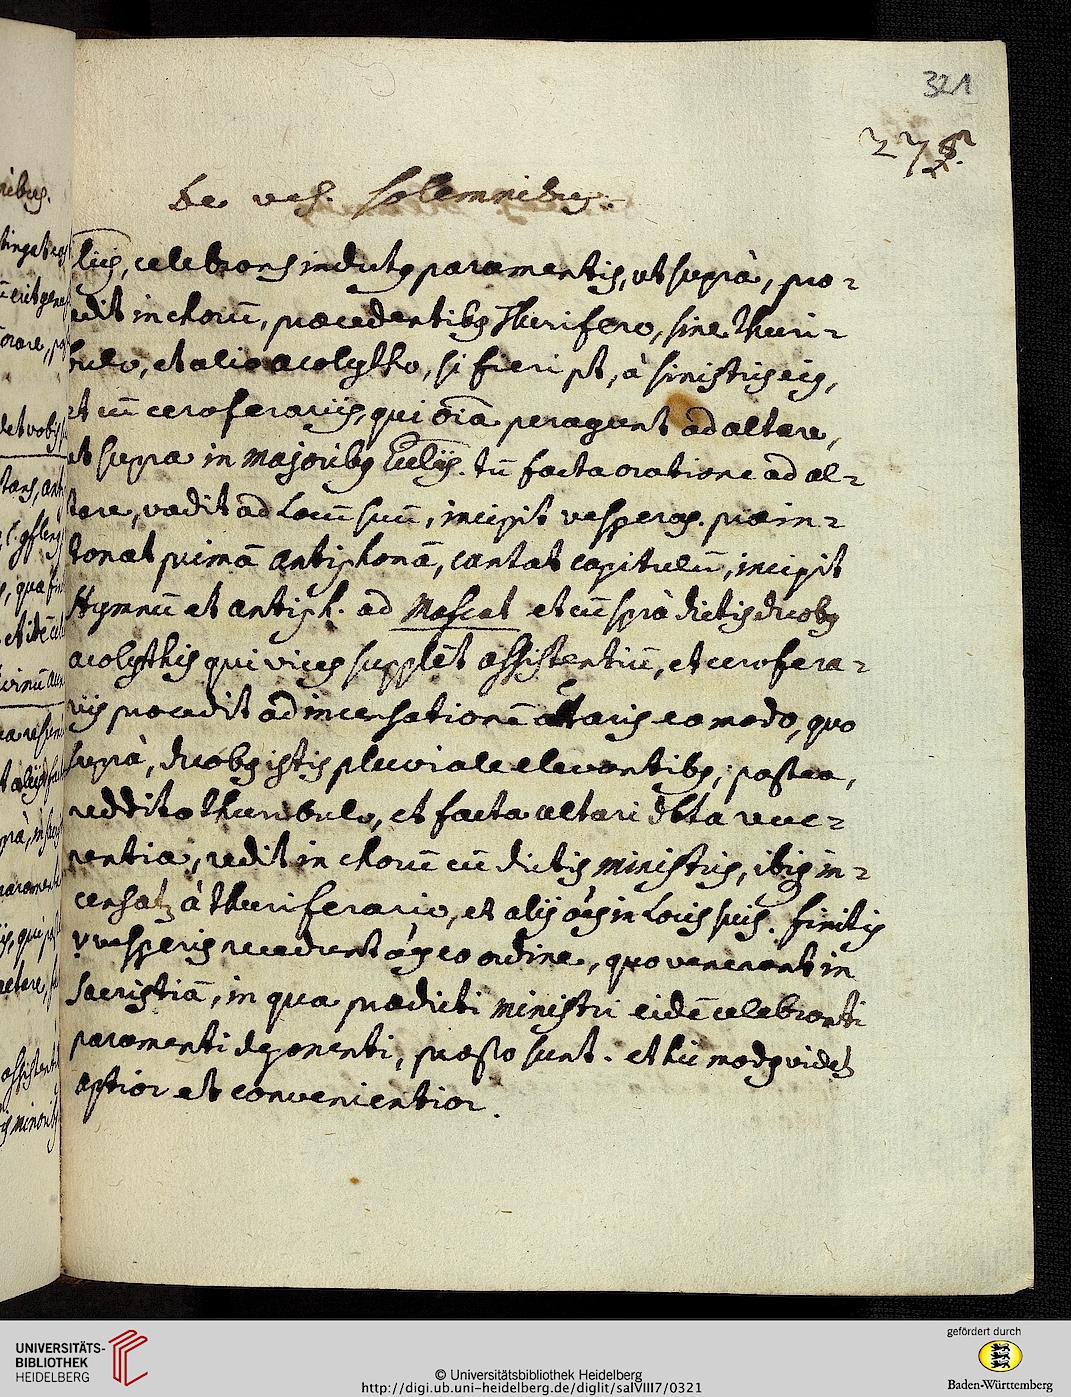 321
275.
De vesp. solemnibus.
liis, celebrans indutq paramentis, ut suprà, pro-
cedit in chorū, præcedentibq Thurifero, sine thuri-
bulo, et alio acolytho, si fieri pt, à sinistris eiq,
et cū ceroferariis, qui oīa peragunt ad altare,
ut supra in majoribq Eccliis. tū facta oratione ad al-
tare, vadit ad Locū suū, incipit vesperas. præin-
tonat primā antiphonā, cantat capitulū, incipit
Hymnū et antiph. ad Mafcat et cū sprà dictis duobq
acolythis qui vices supplēt assistentiū, et cerofera-
riis procedit ad incensationē altaris eo modo, quo
suprà, duobq istis pluviale elevantibq, postea,
reddito thuribulo, et facta altari dbta reve-
rentia, redit in chorū cū dictis ministris, ibiq in-
censatr à thuriferario, et alij oēs in Locis suis. finitis
vesperis recedunt oēs eo ordine, quo venerant in
Sacristiā, in qua prædicti ministri eidē celebranti
paramenti deponenti, præsto sunt. et hic modq videt
aptior et convenientior.
UNIVERSITÄTS-
BIBLIOTHEK
HEIDELBERG
© Universitätsbibliothek Heidelberg
http://digi.ub.uni-heidelberg.de/diglit/salVIII7/0321
gefördert durch
Baden-Württemberg